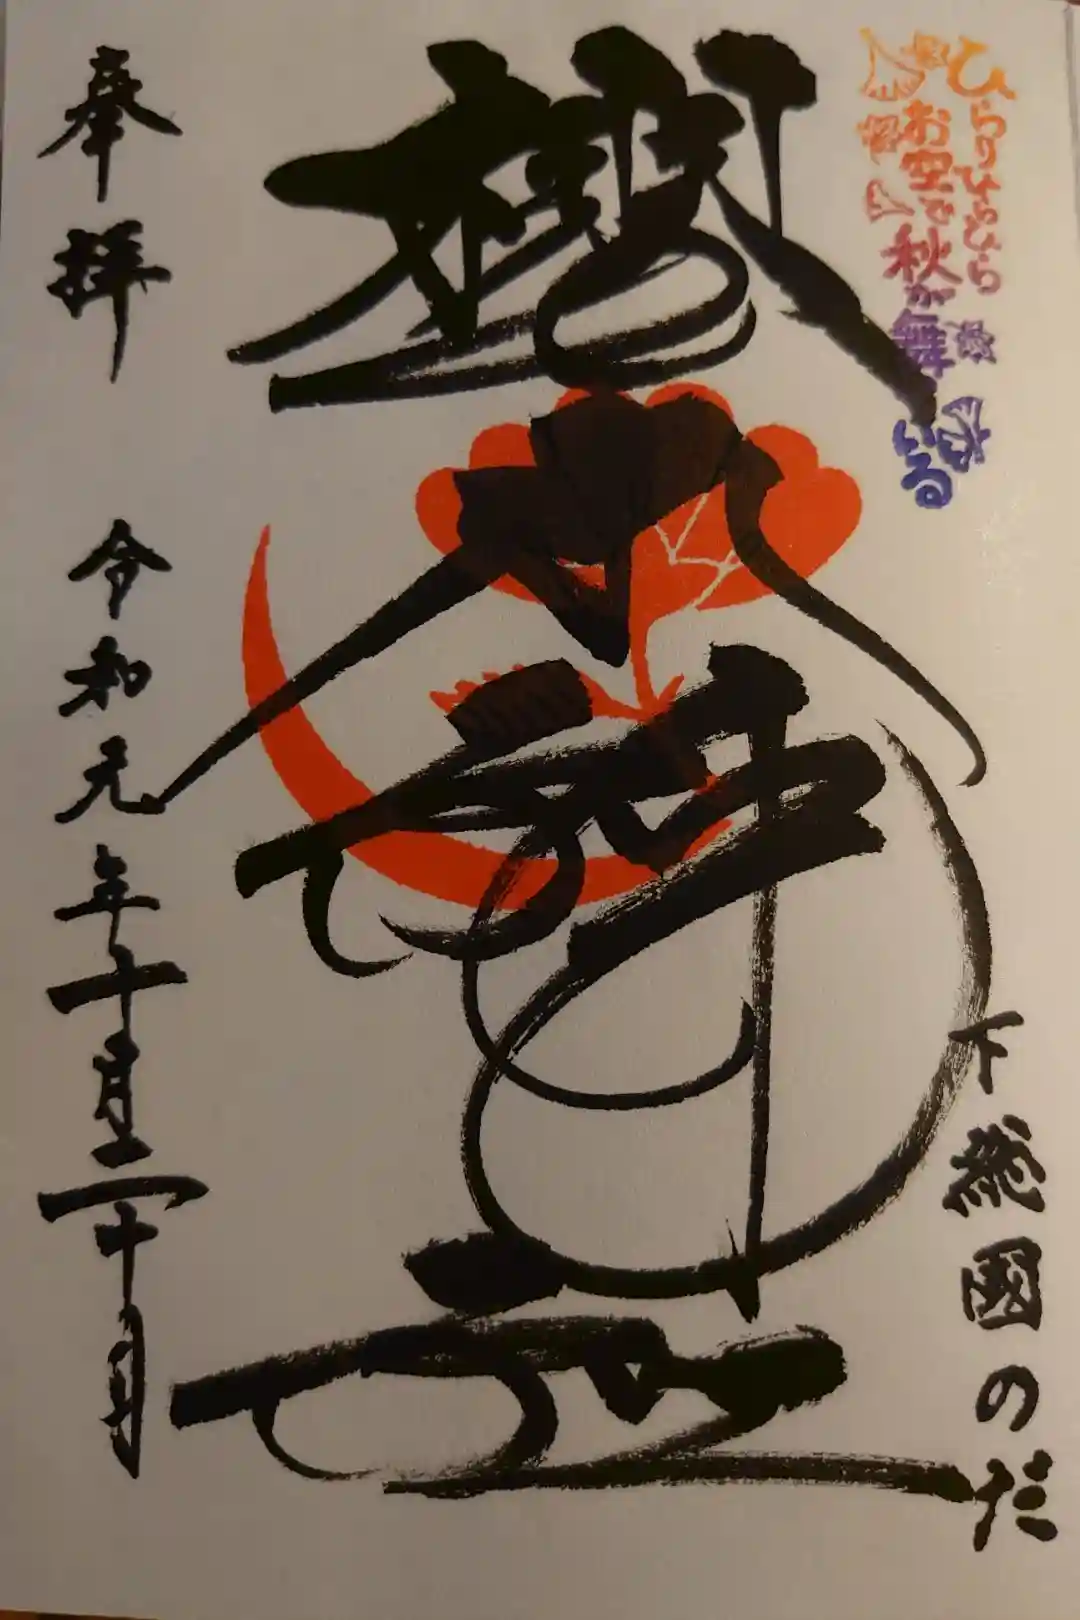 ひらりひらひら
お空で秋が舞
下総國のだ
櫻木神社
奉拝
令和元年十月二十日